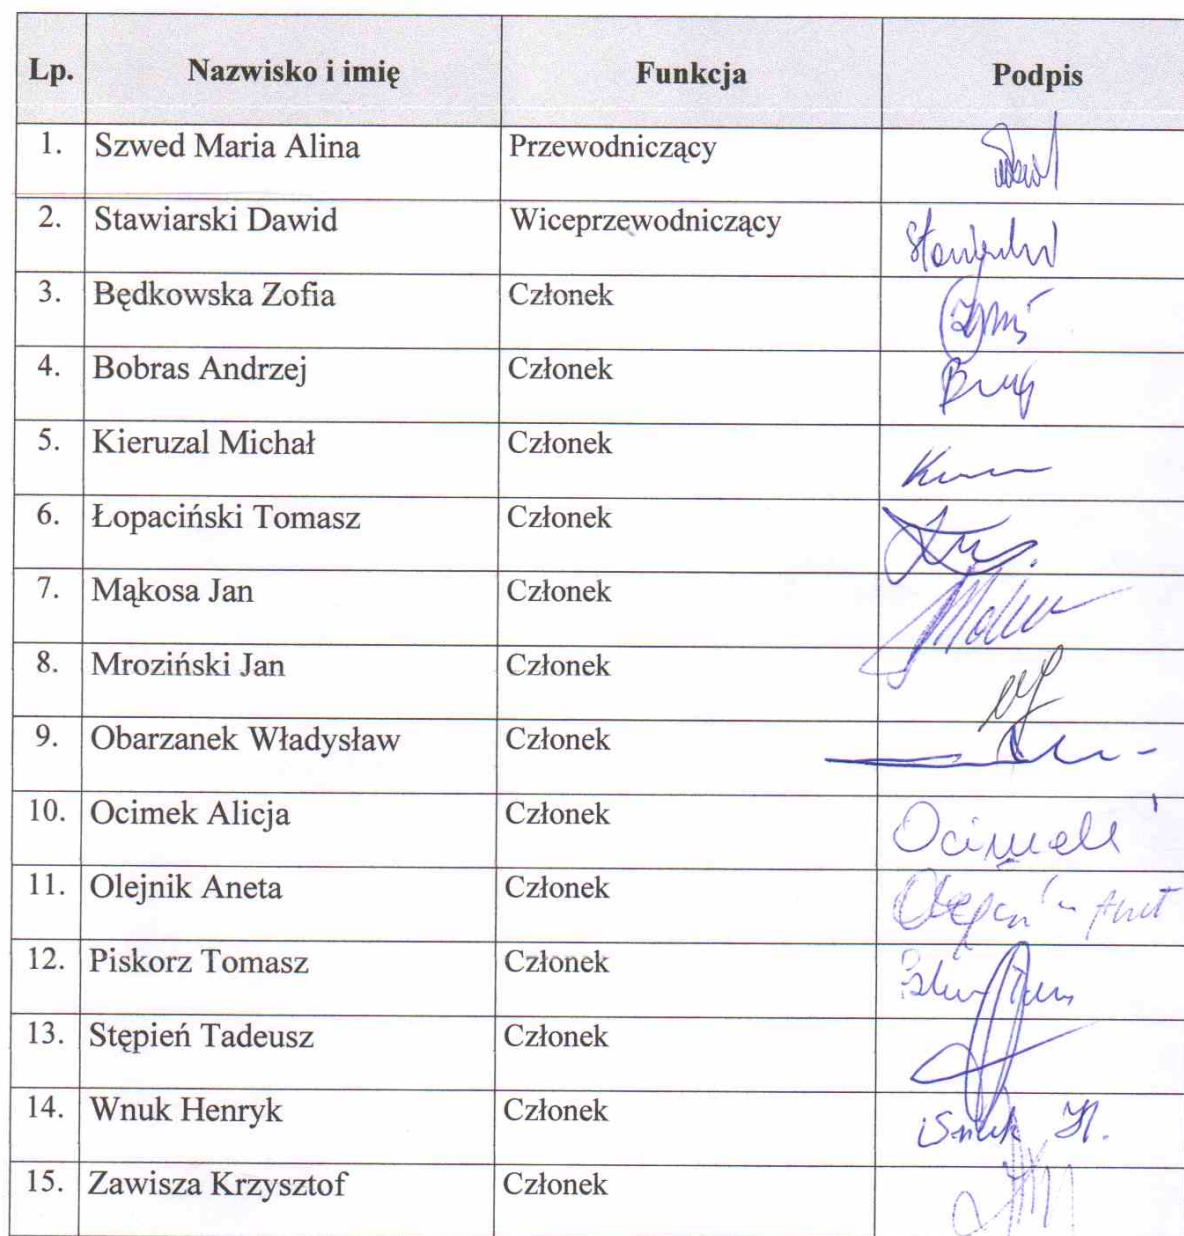 Lp. Nazwisko i imię Funkcja Podpis
1. Szwed Maria Alina Przewodniczący
2. Stawiarski Dawid Wiceprzewodniczący
3. Będkowska Zofia Członek
4. Bobras Andrzej Członek
5. Kieruzal Michał Członek
6. Łopaciński Tomasz Członek
7. Mąkosa Jan Członek
8. Mroziński Jan Członek
9. Obarzanek Władysław Członek
10. Ocimek Alicja Członek Ocimek
11. Olejnik Aneta Członek
12. Piskorz Tomasz Członek
13. Stępień Tadeusz Członek
14. Wnuk Henryk Członek Wnuk H.
15. Zawisza Krzysztof Członek